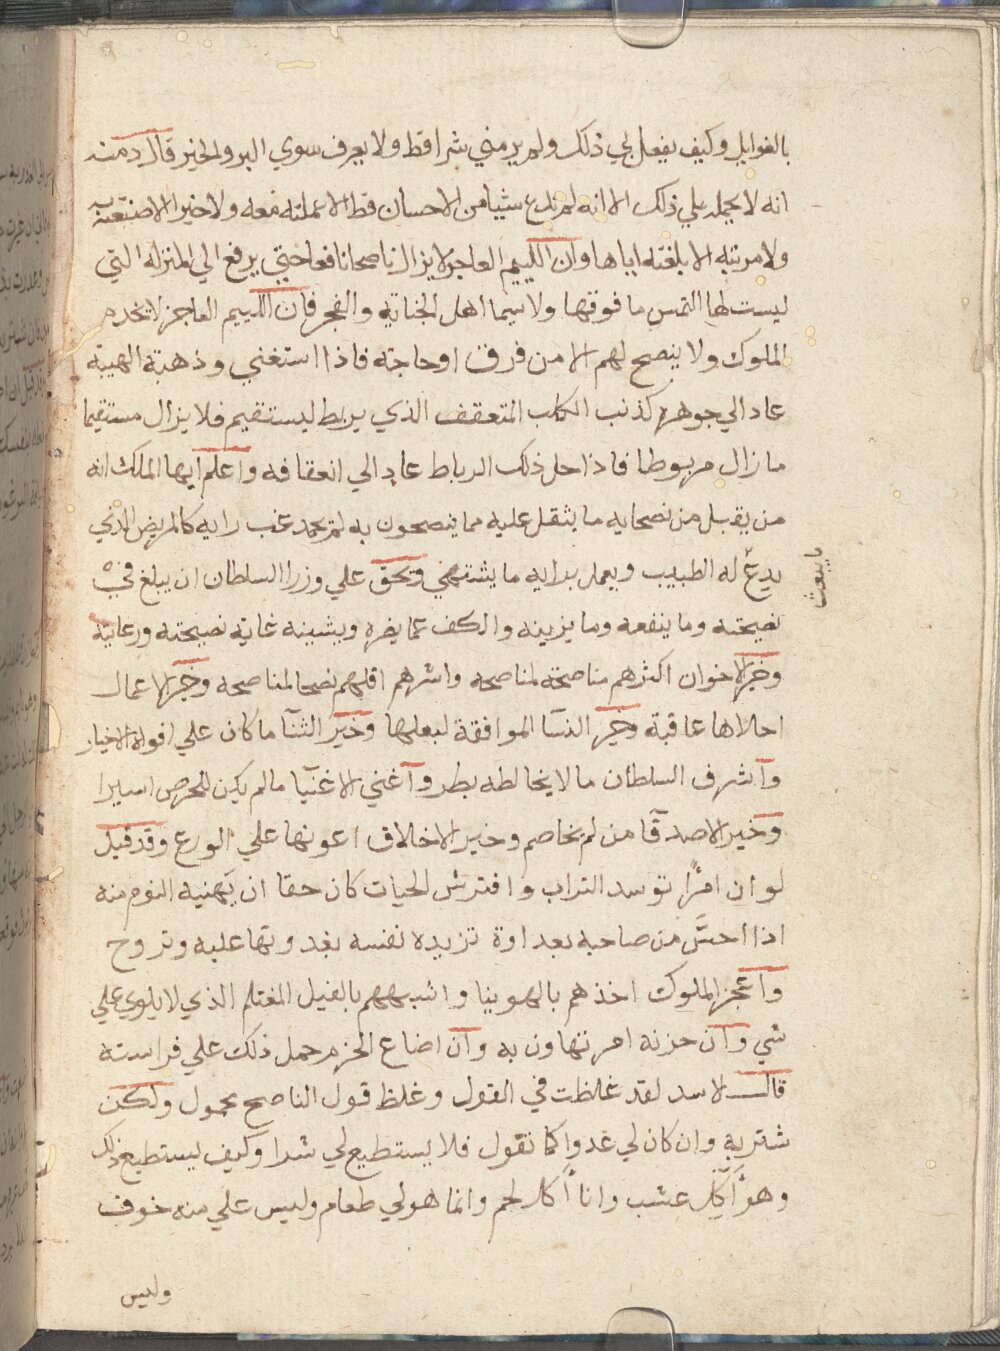 بالغوايل وكيف يفعل لي ذلك ولم ير مني شرا قط ولا يعرف سوي البر والخير قال دمنه
انه لا يحمله علي ذلك الا انه لم تدع شيا من الاحسان قط الا عملته معه ولا خير الا صنعته
ولا مرتبه الا بلغته اياها وان اللييم العاجز لا يزال ناصحا نافعا حتي يرفع الي المنزله التي
ليست لها التمس ما فوقها ولا سيما اهل الخيانه والفجر فان اللييم العاجز لا يخدم
الملوك ولا ينصح لهم الا من فرق او حاجة فاذا استغني وذهبة الهيبة
عاد الي جوهره كذنب الكلب المتعقف الذي يربط ليستقيم فلا يزال مستقيما
ما زال مربوطا فاذا حل ذلك الرباط عاد الي انعقافه واعلم ايها الملك انه
من يقبل من نصحايه ما يثقل عليه مما ينصحون به لم يحمد غب رايه كالمريض الذي
يدع له الطبيب ويعمل برايه ما يشتهي ويحق علي وزرا السلطان ان يبلغ في
ما يبعث
نصيحته وما ينفعه وما يزينه والكف عما يضره ويشينه غاية نصيحته ورعايته
وخير الاخوان اكثرهم مناصحة لمناصحه واشرهم اقلهم نصحا لمناصحه وخير الاعمال
احلاها عاقبة وخير النسآ الموافقة لبعلها وخير الثنآ ما كان علي افواه الاخيار
وآشرف السلطان ما لا يخالطه بطر وآغني الاغنيآ ما لم يكن للحرص اسيرا
وخير الاصدقآ من لم يخاصم وخير الاخلاق اعونها علي الورع وقد قيل
لو ان امرًا توسد التراب وافترش الحيات كان حقا ان يهنيه النوم منه
اذا احسَّ من صاحبه بعداوة تزيده نفسه بغدوتها عليه وتروح
وآعجز الملوك اخذهم بالهوينا واشبههم بالفيل المغتلم الذي لا يلوي علي
شي وآن حزنة امر تهاون به وآن اضاع الحزم حمل ذلك علي فراسته
قال الاسد لقد غلظت في القول وغلظ قول الناصح محمول ولكن
شتربه وان كان لي عدوا كما تقول فلا يستطيع لي شدا وكيف يستطيع ذلك
وهو آكل عشب وانا آكل لحم وانما هو لي طعام وليس علي منه خوف
وليس